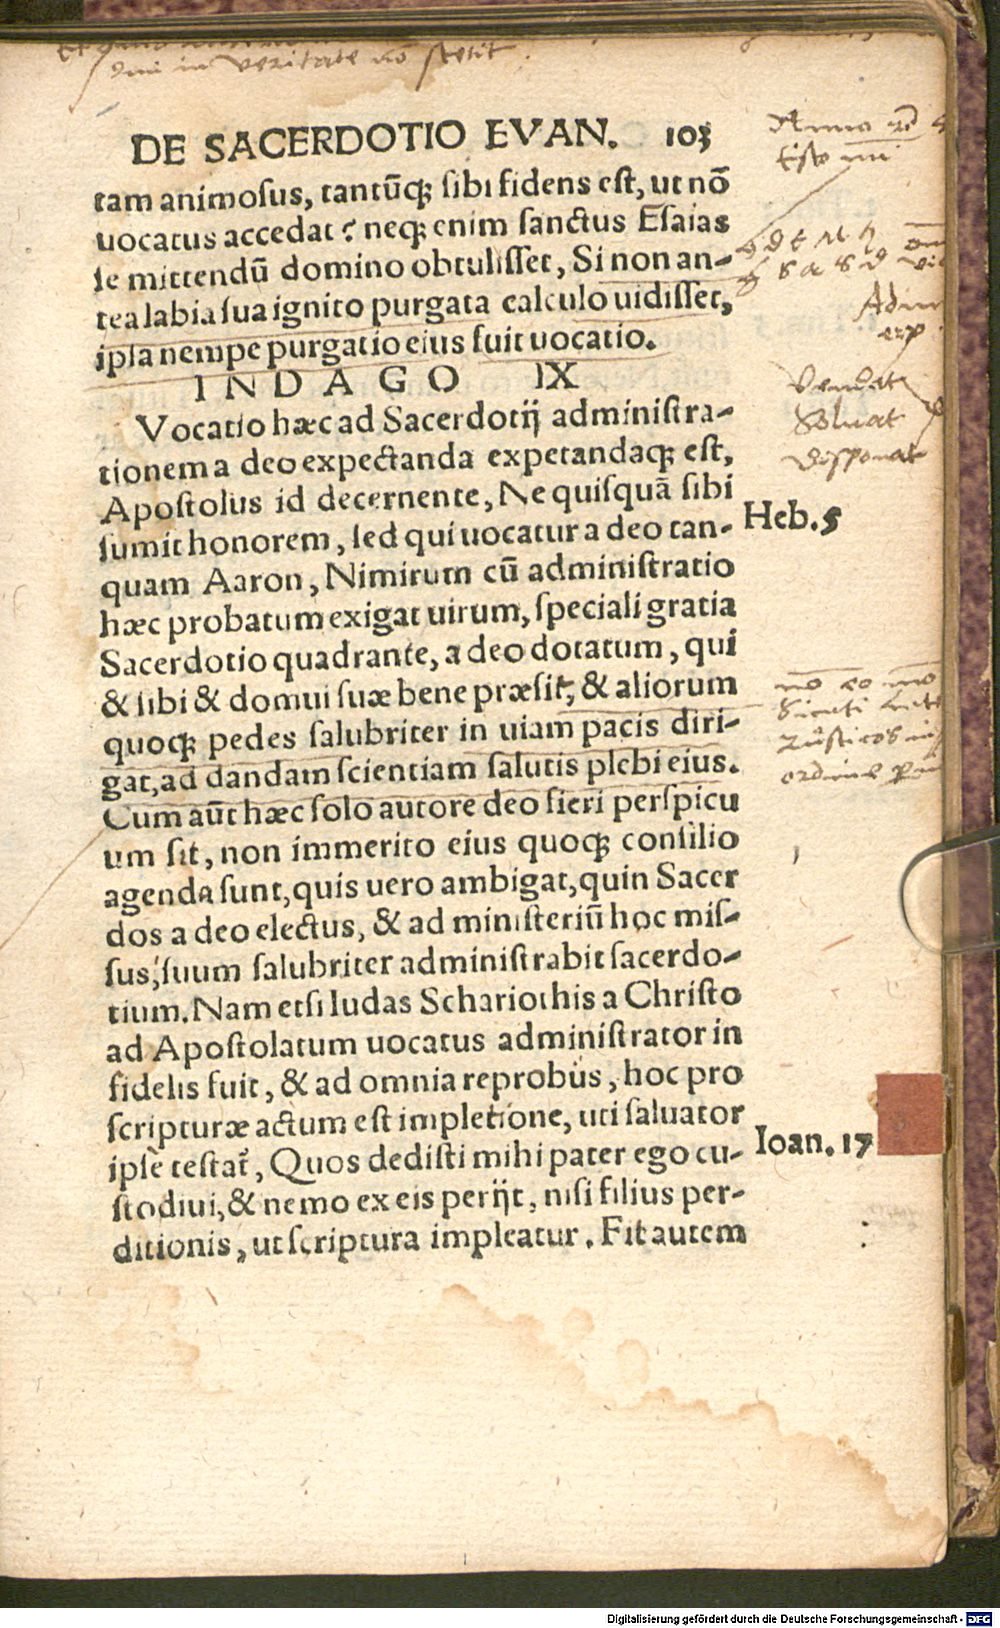 dni in veritate nō stetit.
DE SACERDOTIO EVAN. 103
tam animosus, tantūq; sibi fidens est, ut nō
uocatus accedat? neq; enim sanctus Esaias
se mittendū domino obtulisset, Si non an-
tea labia sua ignito purgata calculo uidisset,
ipsa nempe purgatio eius fuit uocatio.
INDAGO IX
Vocatio hæc ad Sacerdotij administra-
tionem a deo expectanda expetandaq; est,
Apostolus id decernente, Ne quisquā sibi
sumit honorem, sed qui uocatur a deo tan-
Heb. 5
quam Aaron, Nimirum cū administratio
hæc probatum exigat uirum, speciali gratia
Sacerdotio quadrante, a deo dotatum, qui
& sibi & domui suæ bene præsit, & aliorum
quoq; pedes salubriter in uiam pacis diri-
gat, ad dandam scientiam salutis plebi eius.
Cum aūt hæc solo autore deo fieri perspicu
um sit, non immerito eius quoq; consilio
agenda sunt, quis uero ambigat, quin Sacer
dos a deo electus, & ad ministeriū hoc mis-
sus, suum salubriter administrabit sacerdo-
tium. Nam etsi Iudas Schariothis a Christo
ad Apostolatum uocatus administrator in
fidelis fuit, & ad omnia reprobus, hoc pro
scripturæ actum est impletione, uti saluator
ipse testat̄, Quos dedisti mihi pater ego cu-
Ioan. 17
stodiui, & nemo ex eis perijt, nisi filius per-
ditionis, ut scriptura impleatur. Fit autem
Vendat
Soluat
Disponat
Digitalisierung gefördert durch die Deutsche Forschungsgemeinschaft - DFG